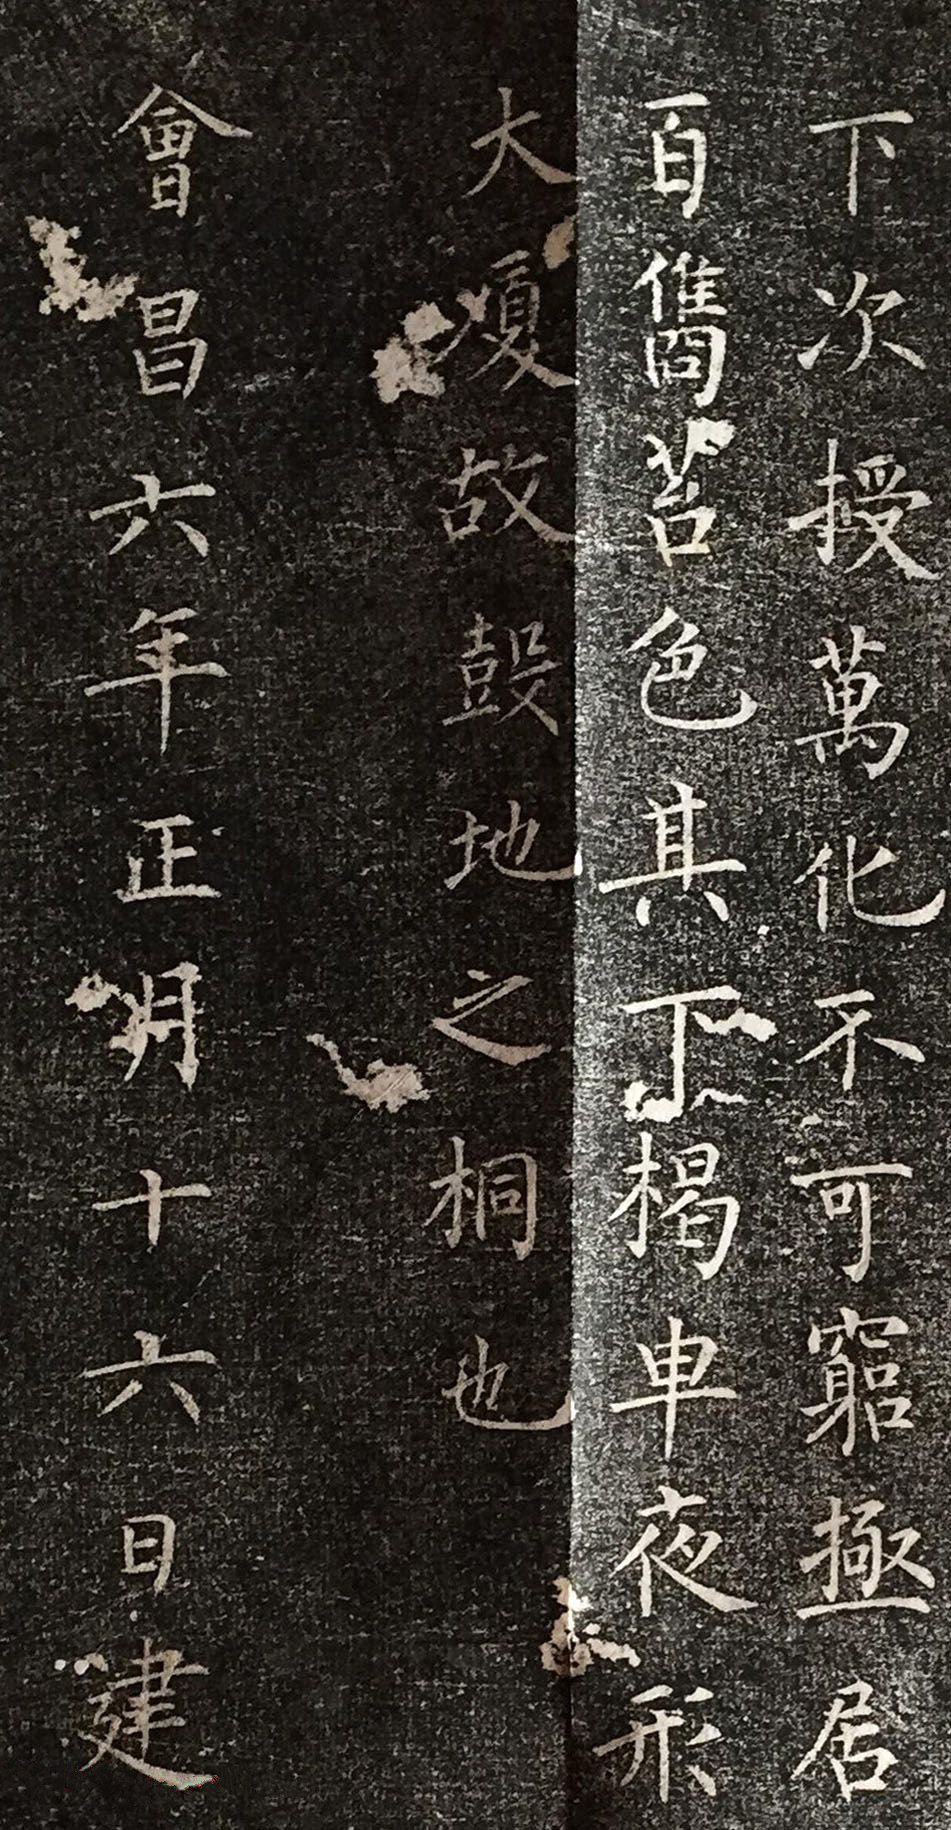 下次授萬化不可窮極居
百儁苔色其下楬車夜形
大夏故鼓地之桐也
會昌六年正月十六日建